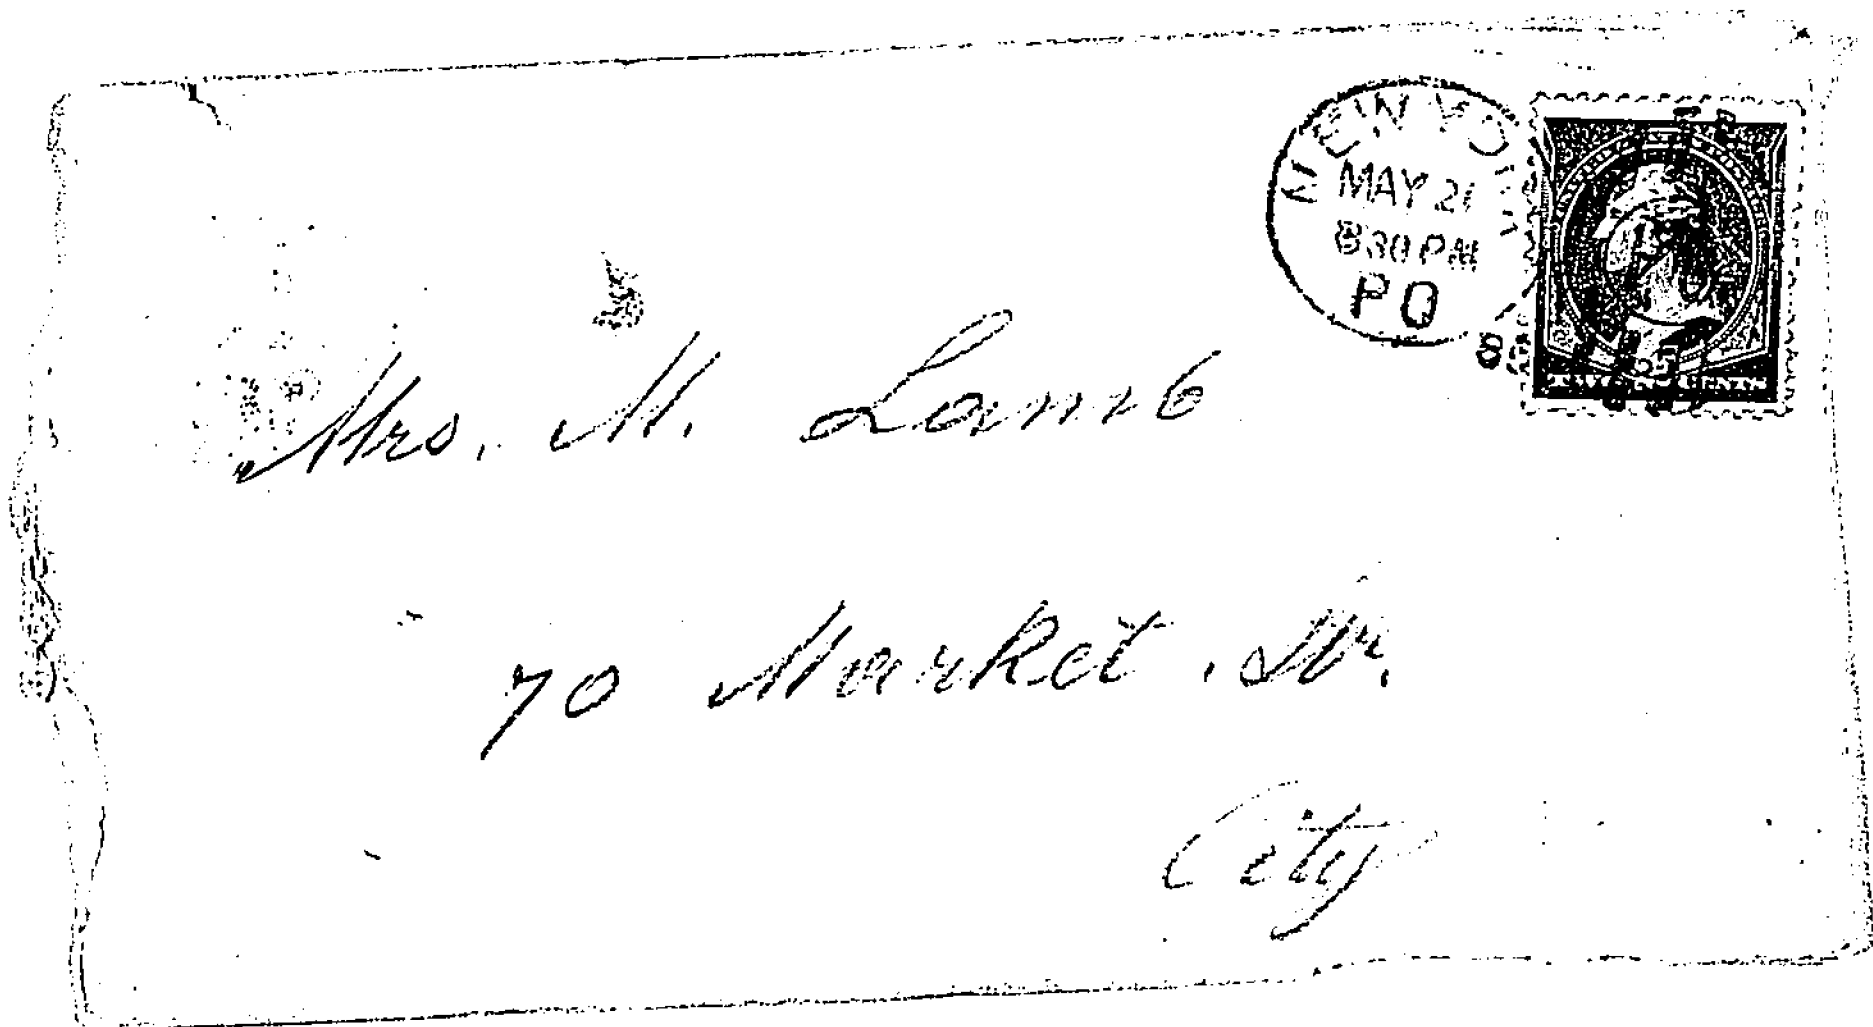 NEW YORK
MAY 21
830 PM
P O
TWO CENTS
Mrs. M. Lamb
70 Market St.
City